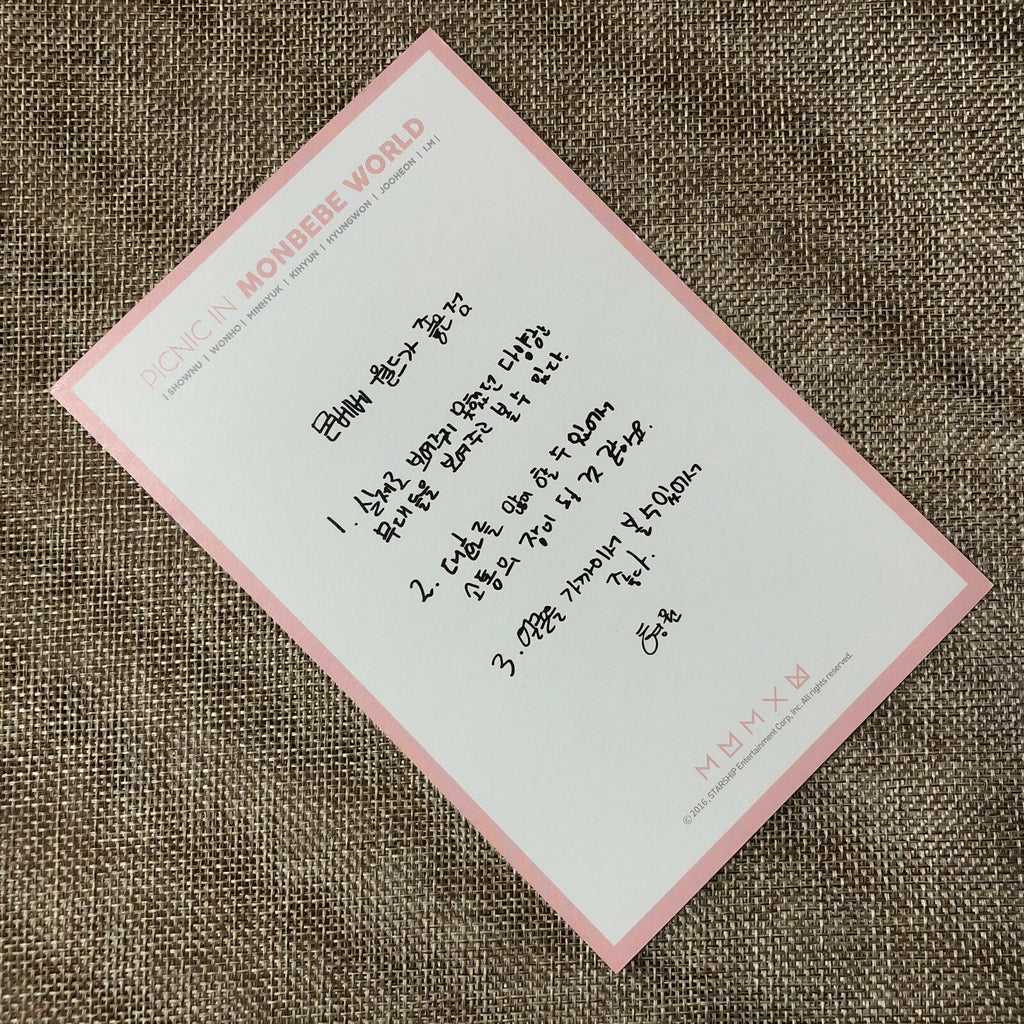 PICNIC IN MONBEBE WORLD
| SHOWNU | WONHO | MINHYUK | KIHYUN | HYUNGWON | JOOHEON | I.M |
몬베베 월드가 좋은점
1. 실제로 보여주지 못했던 다양한
무대들을 보여주고 볼 수 있다.
2. 대화를 많이 할 수 있어서
소통의 장이 될 것 같아요.
3. 얼굴을 가까이서 볼 수 있어서
좋다.
형원
© 2016. STARSHIP Entertainment Corp, Inc. All rights reserved.